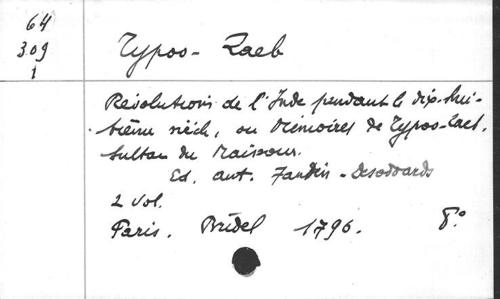 64
309
1
Typoo-Zaeb
Révolutions de l'Inde pendant le dix-hui-
tième siècle, ou Mémoires de Typoo-Zaeb,
sultan du Maissour.
Ed. ant. Fantin-Desodoards
2 Vol.
Paris. Bridel 1796. 8°